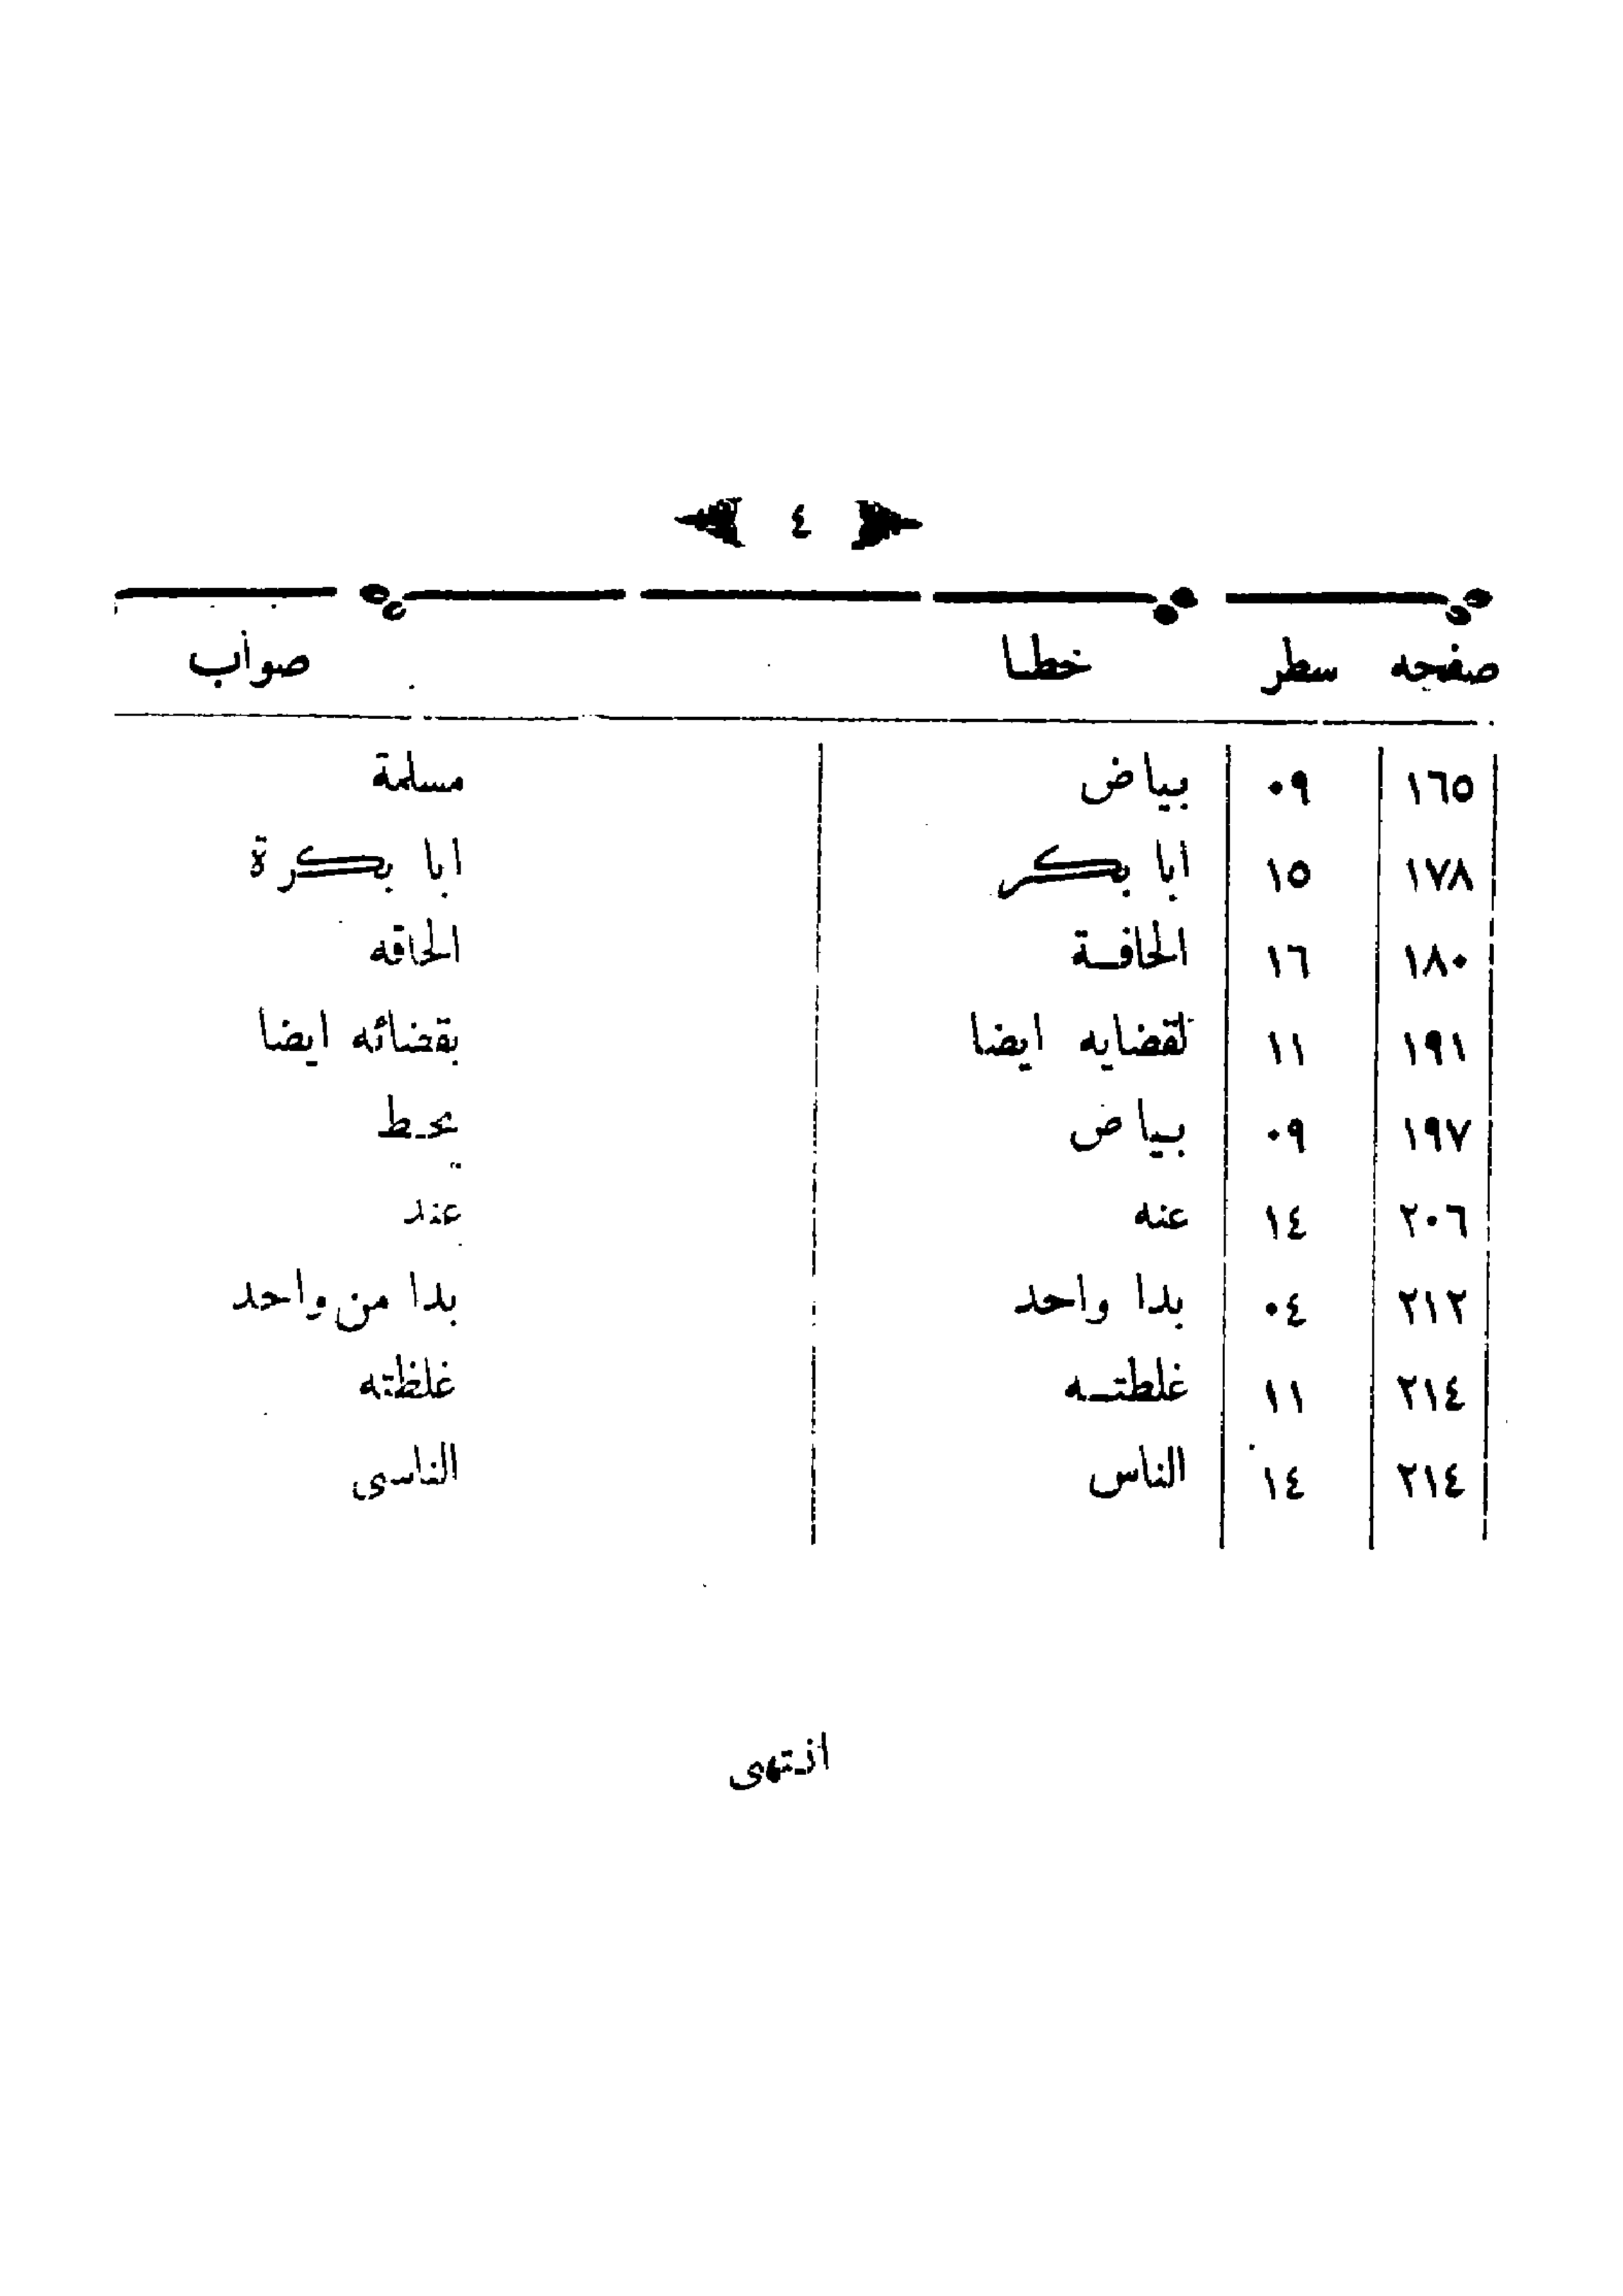 ٤
صفحه سطر خطا صواب
١٦٥ ٠٩ بياض مسلمة
١٧٨ ١٥ ابا بكر ابا بكرة
١٨٠ ١٦ الحافة الحاقه
١٩١ ١١ لقضايه ايضا بقضائه ايضا
١٩٧ ٠٩ بياض يحط
٢٠٦ ١٤ عنه عند
٢١٢ ٠٤ بدا واحد بدا من واحد
٢١٤ ١١ غلطته غلظته
٢١٤ ١٤ الناس الناسى
انتهى